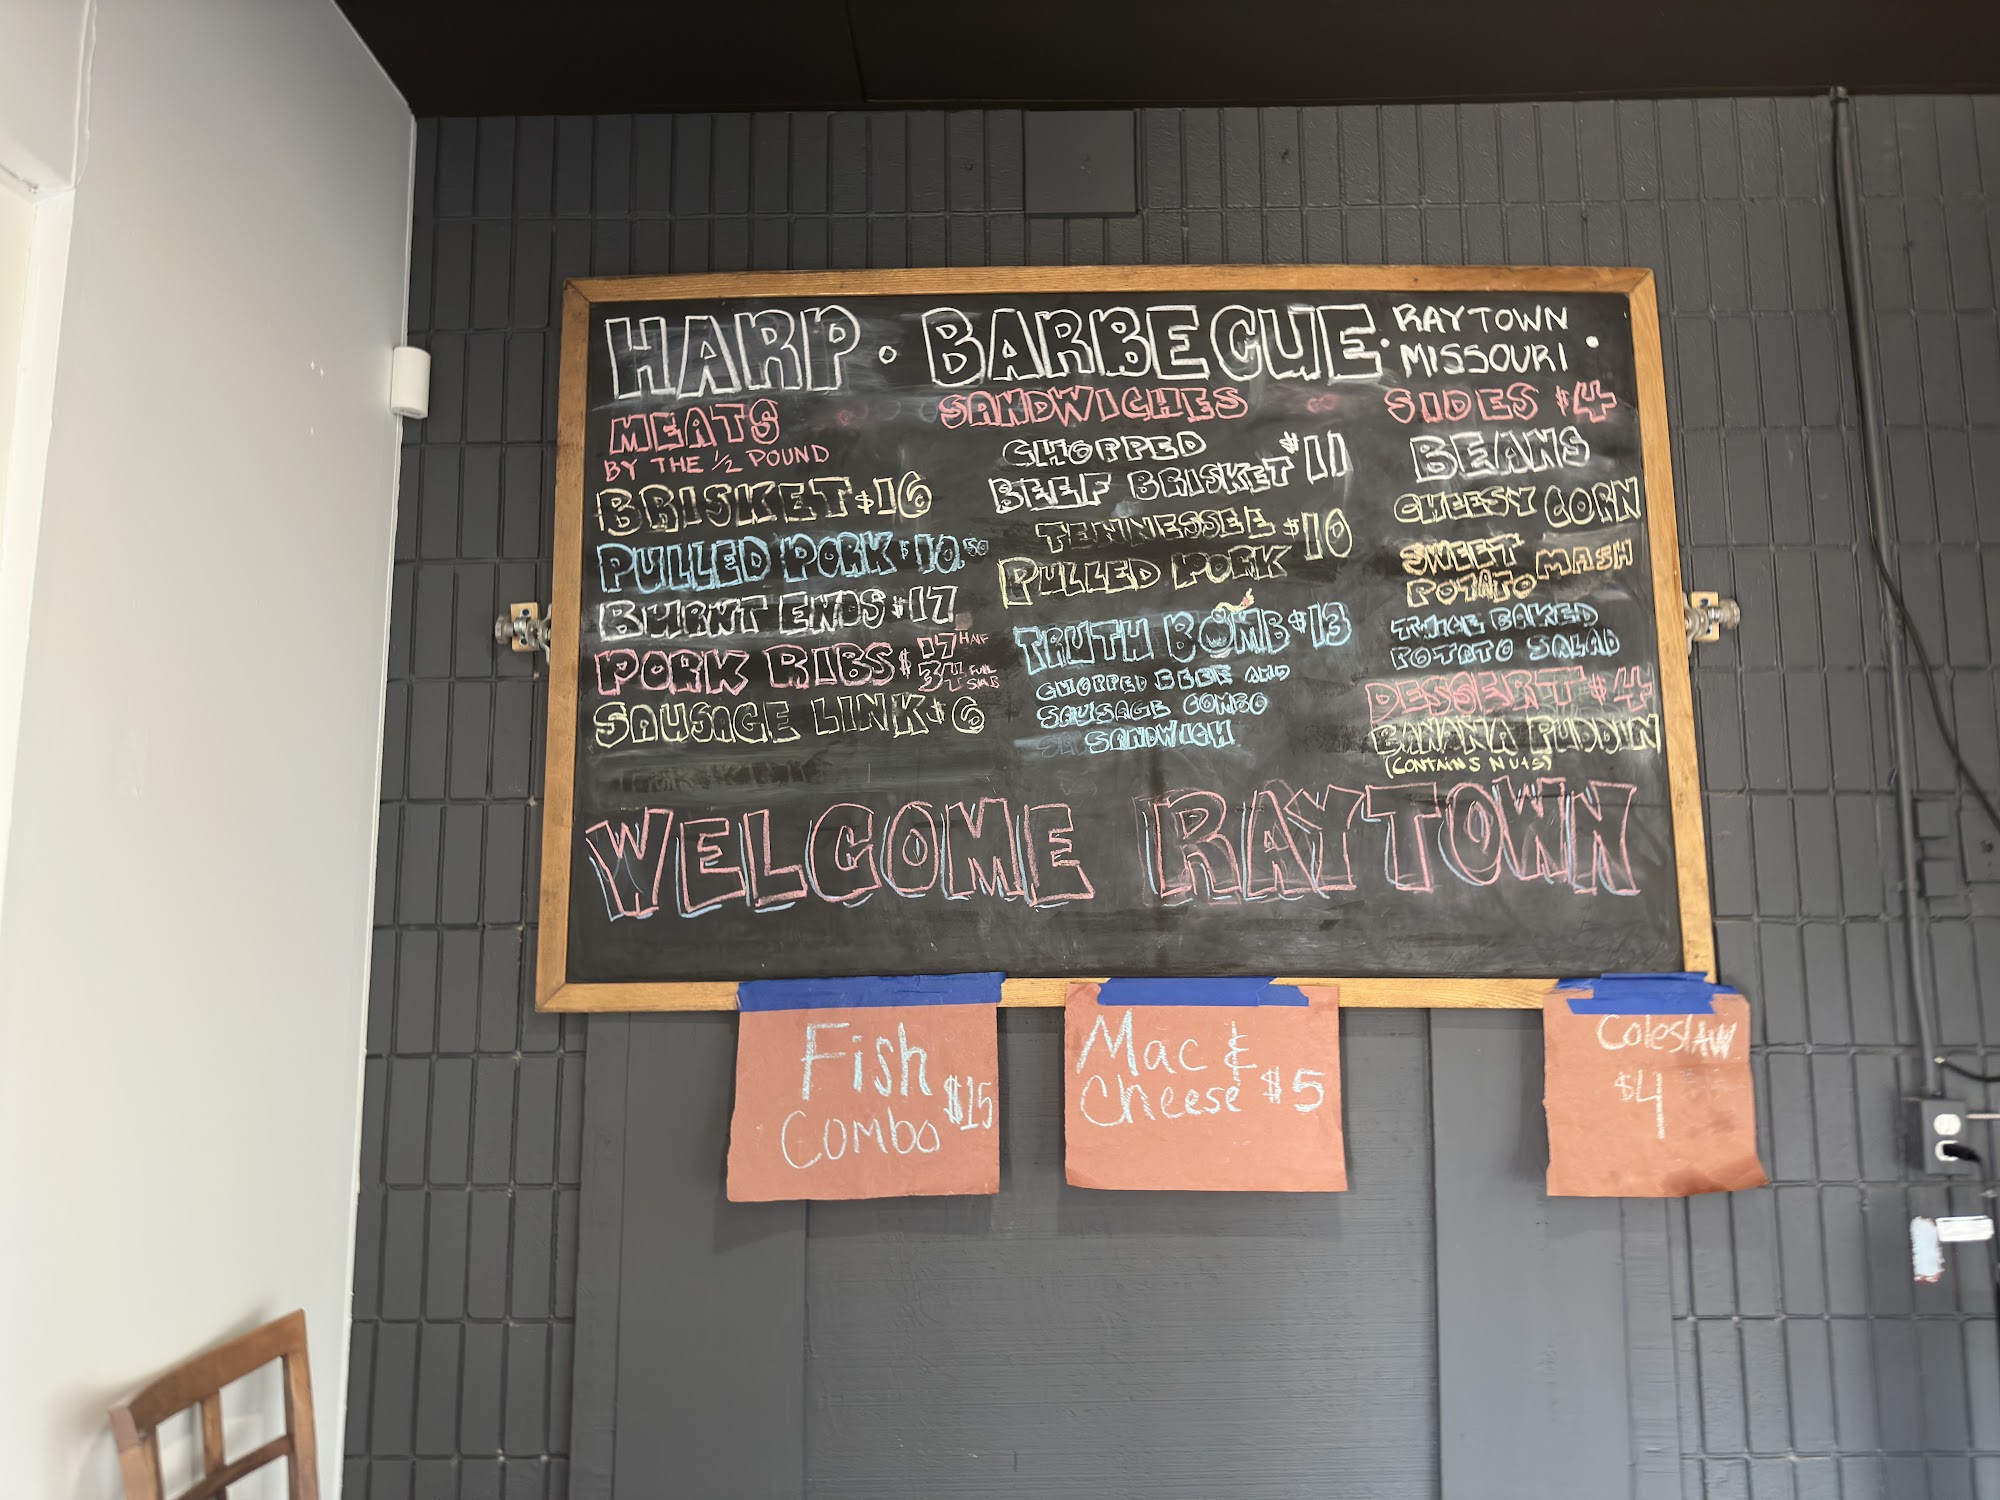 HARP • BARBECUE • RAYTOWN MISSOURI •
MEATS
BY THE 1/2 POUND
BRISKET $16
PULLED PORK $10.50
BURNT ENDS $17
PORK RIBS $17 HALF
$34 FULL SLAB
SAUSAGE LINK $6
SANDWICHES
CHOPPED
BEEF BRISKET $11
TENNESSEE
PULLED PORK $10
TRUTH BOMB $13
CHOPPED BEEF AND
SAUSAGE COMBO
SANDWICH
SIDES $4
BEANS
CHEESY CORN
SWEET
POTATO MASH
TWICE BAKED
POTATO SALAD
DESSERT $4
BANANA PUDDIN
(CONTAINS NUTS)
WELCOME RAYTOWN
Fish
Combo $15
Mac &
Cheese $5
Coleslaw
$4